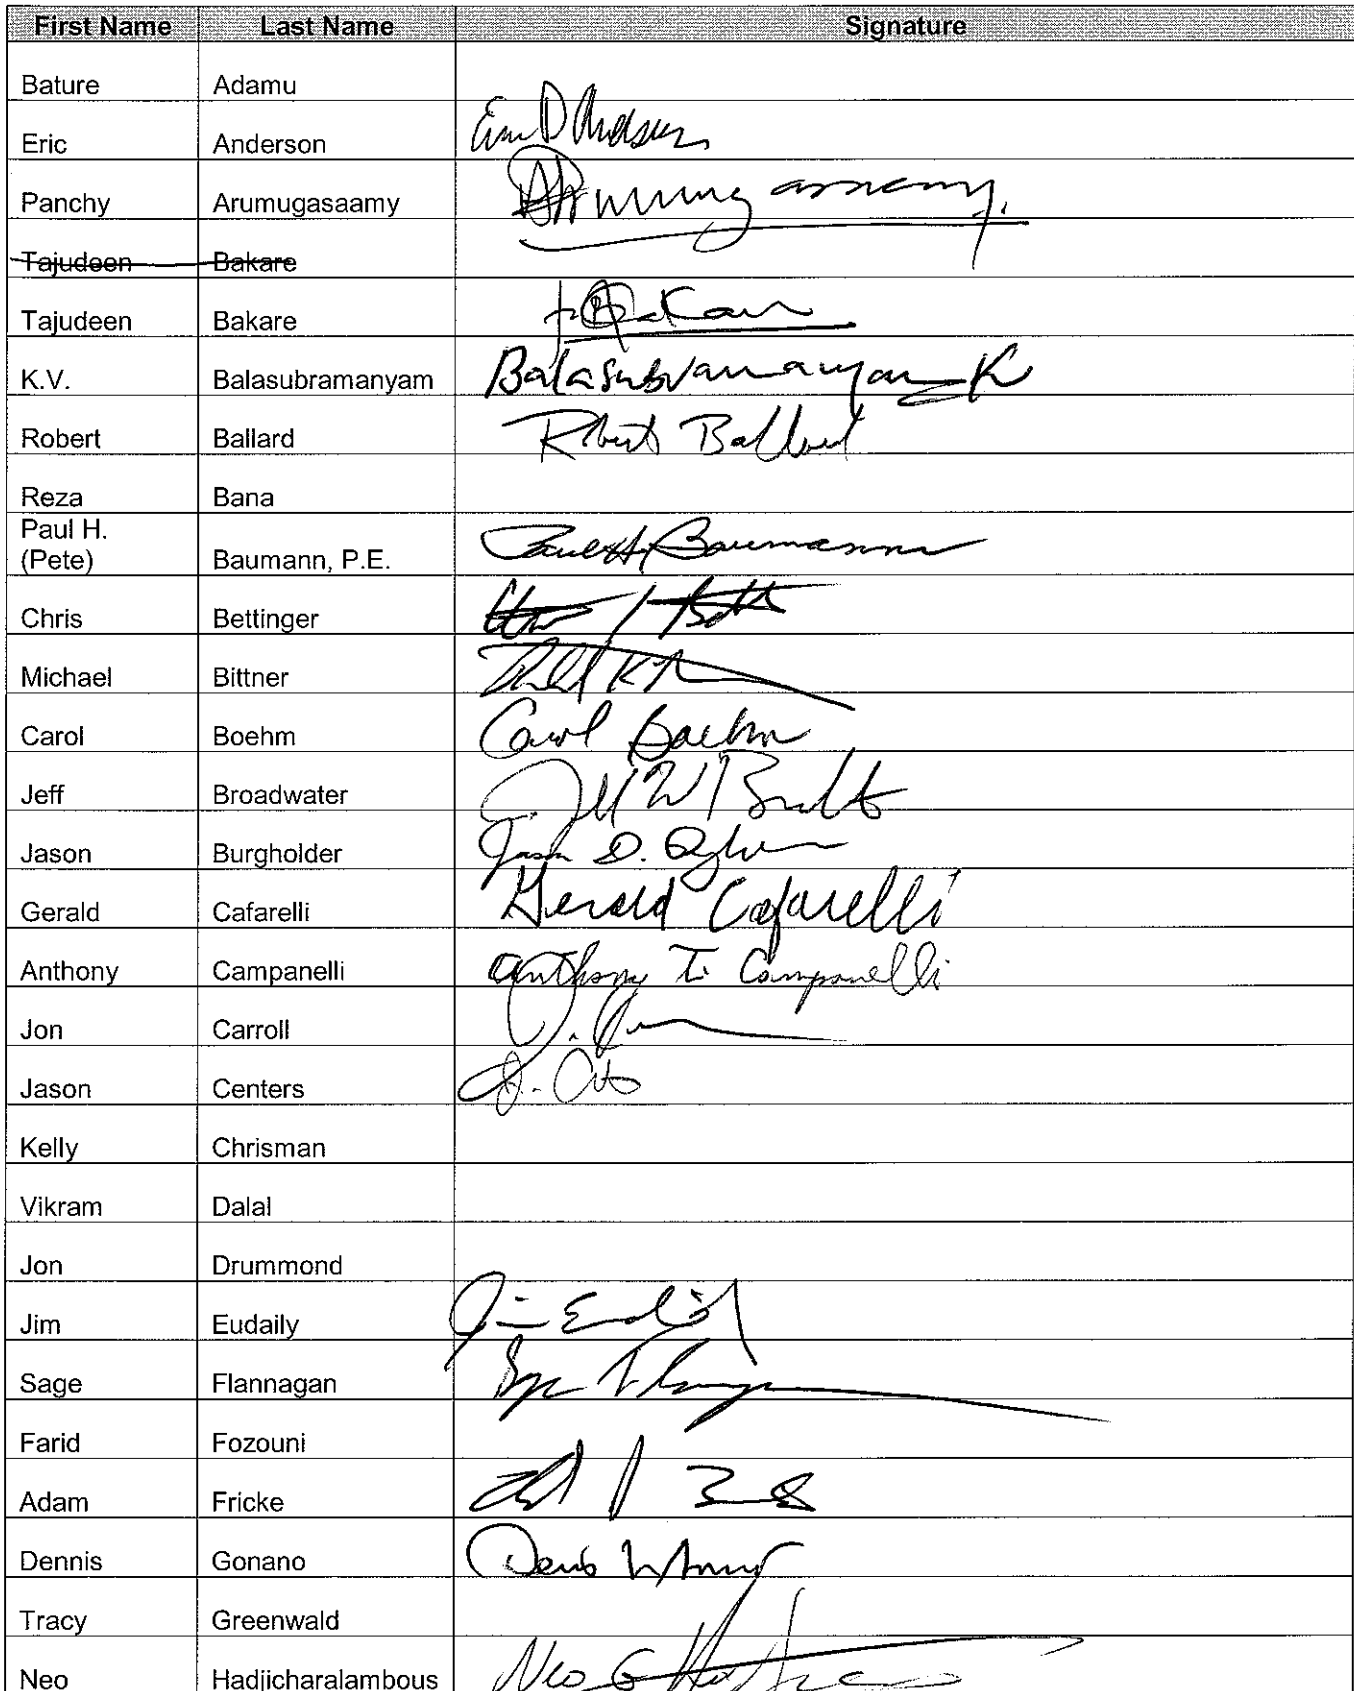 First Name Last Name Signature
Bature Adamu
Eric Anderson
Panchy Arumugasaamy
Tajudeen Bakare
Tajudeen Bakare
K.V. Balasubramanyam Balasubramanyam K
Robert Ballard Robert Ballard
Reza Bana
Paul H.
(Pete) Baumann, P.E. Paul H. Baumann
Chris Bettinger
Michael Bittner
Carol Boehm Carol Boehm
Jeff Broadwater
Jason Burgholder
Gerald Cafarelli Gerald Cafarelli
Anthony Campanelli Anthony T. Campanelli
Jon Carroll
Jason Centers
Kelly Chrisman
Vikram Dalal
Jon Drummond
Jim Eudaily
Sage Flannagan
Farid Fozouni
Adam Fricke
Dennis Gonano
Tracy Greenwald
Neo Hadjicharalambous Neo G